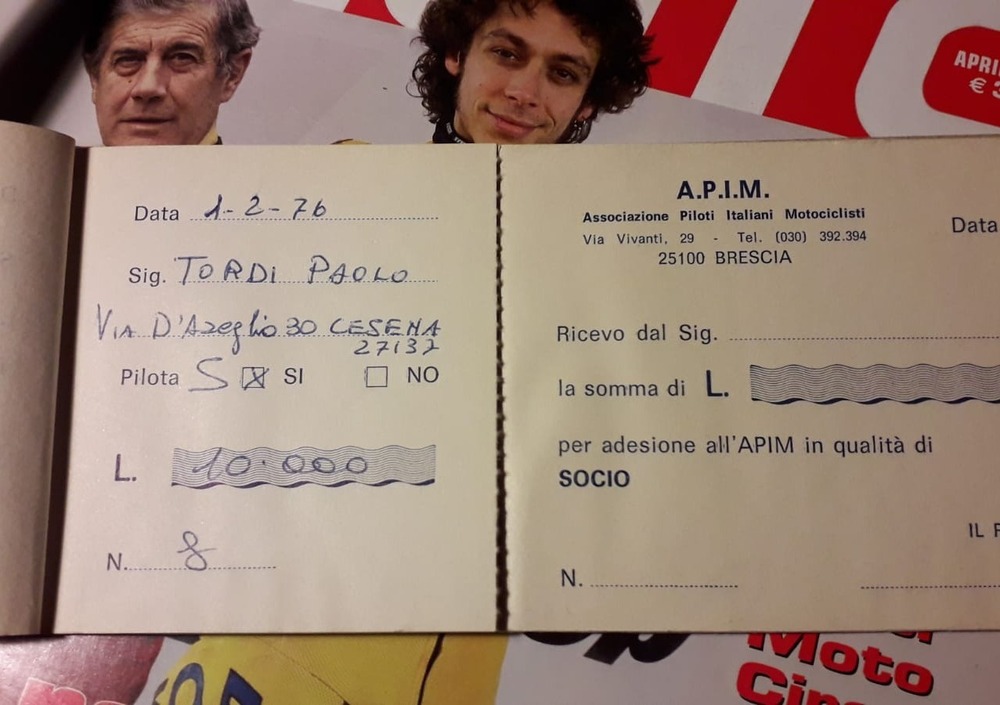 APRI
€ 3
Data 1-2-76
Sig. TORDI PAOLO
VIA D'Azeglio 30 CESENA
27137
Pilota S SI NO
L. 10.000
N. 8
A.P.I.M.
Associazione Piloti Italiani Motociclisti
Via Vivanti, 29 - Tel. (030) 392.394
25100 BRESCIA
Data
Ricevo dal Sig.
la somma di L.
per adesione all'APIM in qualità di
SOCIO
IL
N.
Moto